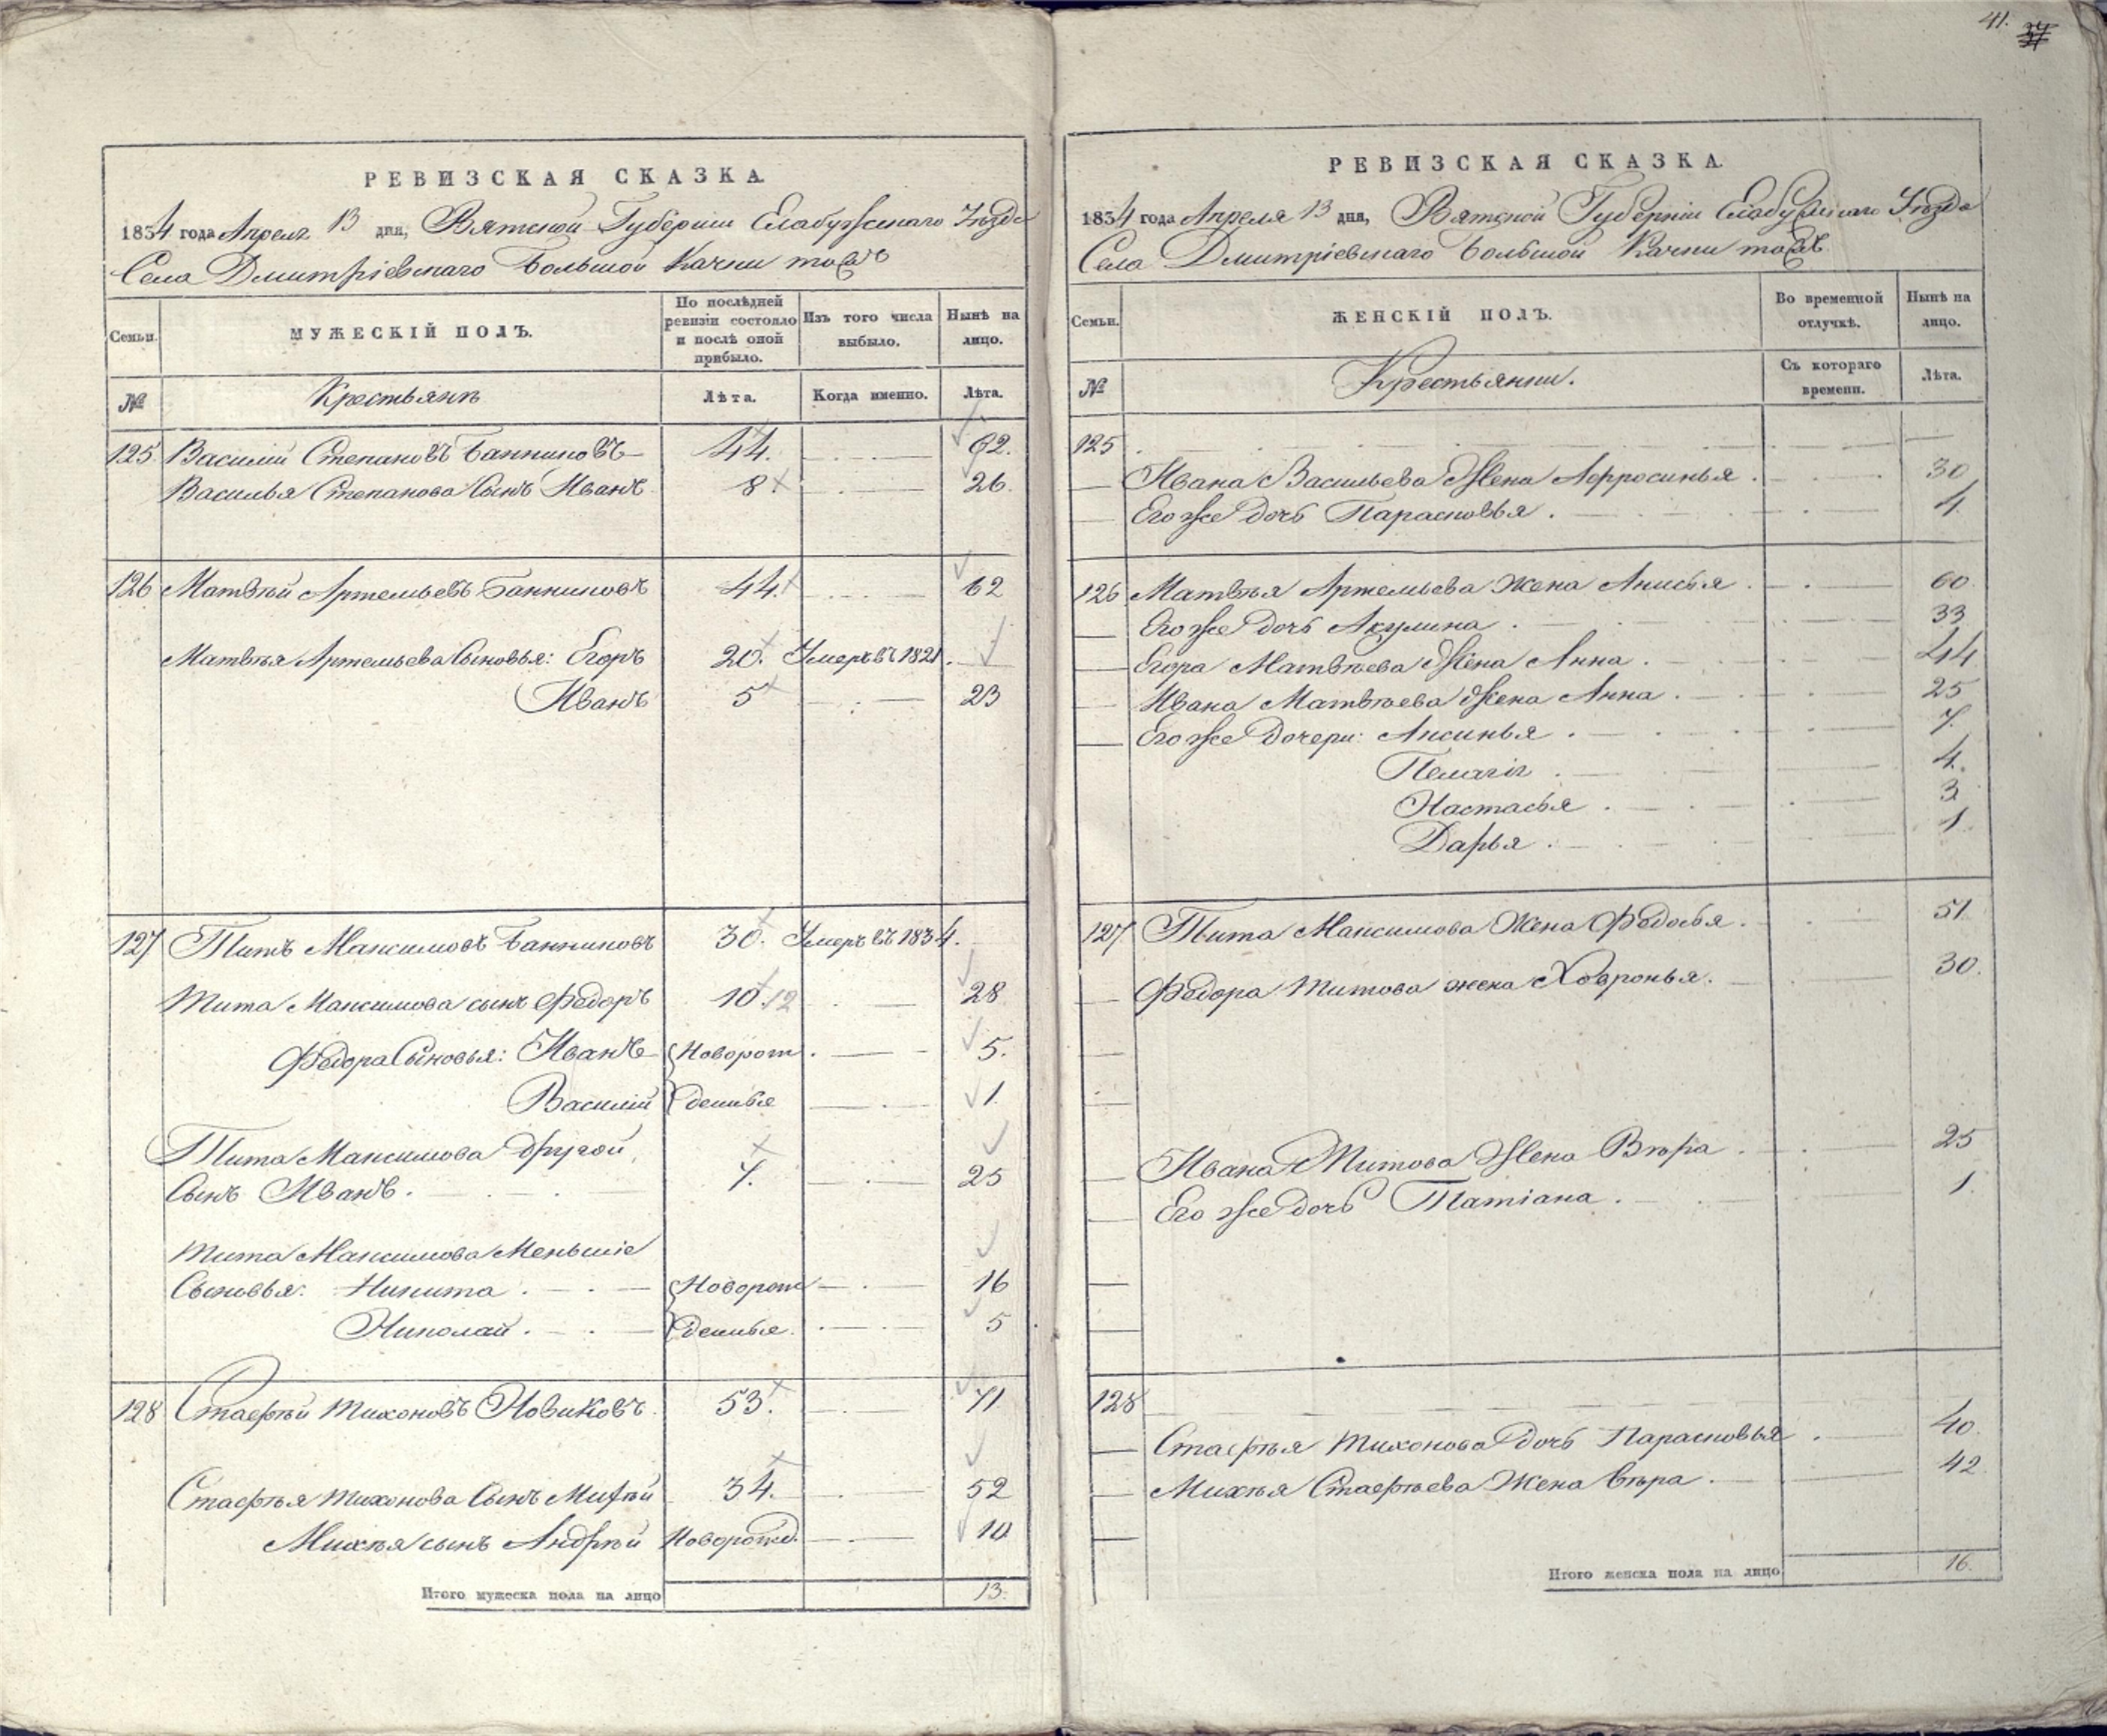 41. 37
РЕВИЗСКАЯ СКАЗКА.
1834 года Апреля 13 дня, Вятской Губернии Елабужскаго Уѣзда
Села Дмитріевскаго Большой Качки тожъ
Семьи.
МУЖЕСКІЙ ПОЛЪ.
По послѣдней ревизіи состояло и послѣ оной прибыло.
Изъ того числа выбыло.
Нынѣ на лицо.
№
Крестьянъ
Лѣта.
Когда именно.
Лѣта.
125 Василій Степановъ Банниковъ 44. 62.
Василья Степанова Сынъ Иванъ 8 26.
126 Матвѣй Артемьевъ Банниковъ 44. 62
Матвѣя Артемьева Сыновья: Егоръ 20. Умеръ въ 1821.
Иванъ 5 23
127 Титъ Максимовъ Банниковъ 30. Умеръ въ 1834.
Тита Максимова сынъ Федоръ 10. 12 28
Федора Сыновья: Иванъ Новорож 5.
Василій денные 1.
Тита Максимова другой
Сынъ Иванъ. 7. 25
Тита Максимова Меньшіе
Сыновья: Никита Новорож 16
Николай. денные. 5
128 Стафѣй Тихоновъ Новиковъ 53. 71
Стафѣя Тихонова Сынъ Михѣй 34. 52
Михѣя сынъ Андрѣй Новорожд. 10
Итого мужеска пола на лицо 13.
РЕВИЗСКАЯ СКАЗКА.
1834 года Апреля 13 дня, Вятской Губерніи Елабужскаго Уѣзда
Села Дмитріевскаго Большой Качки тожъ
Семьи.
ЖЕНСКІЙ ПОЛЪ.
Во временной отлучкѣ.
Нынѣ на лицо.
№
Крестьянки.
Съ котораго времени.
Лѣта.
125
Ивана Васильева Жена Афросинья. 30
Его же дочь Парасковья. 4
126 Матвѣя Артемьева жена Анисья. 60
Его же дочь Акулина. 33
Егора Матвѣева Жена Анна. 44
Ивана Матвѣева Жена Анна. 25
Его же дочери: Аксинья. 7.
Пелагія. 4.
Настасья. 3
Дарья. 1.
127 Тита Максимова Жена Федосья. 51
Федора Титова жена Ховронья. 30.
Ивана Титова Жена Вѣра. 25
Его же дочь Татіана. 1.
128
Стафѣя Тихонова дочь Парасковья. 40.
Михѣя Стафѣева Жена Вѣра. 42
Итого женска пола на лицо 16.